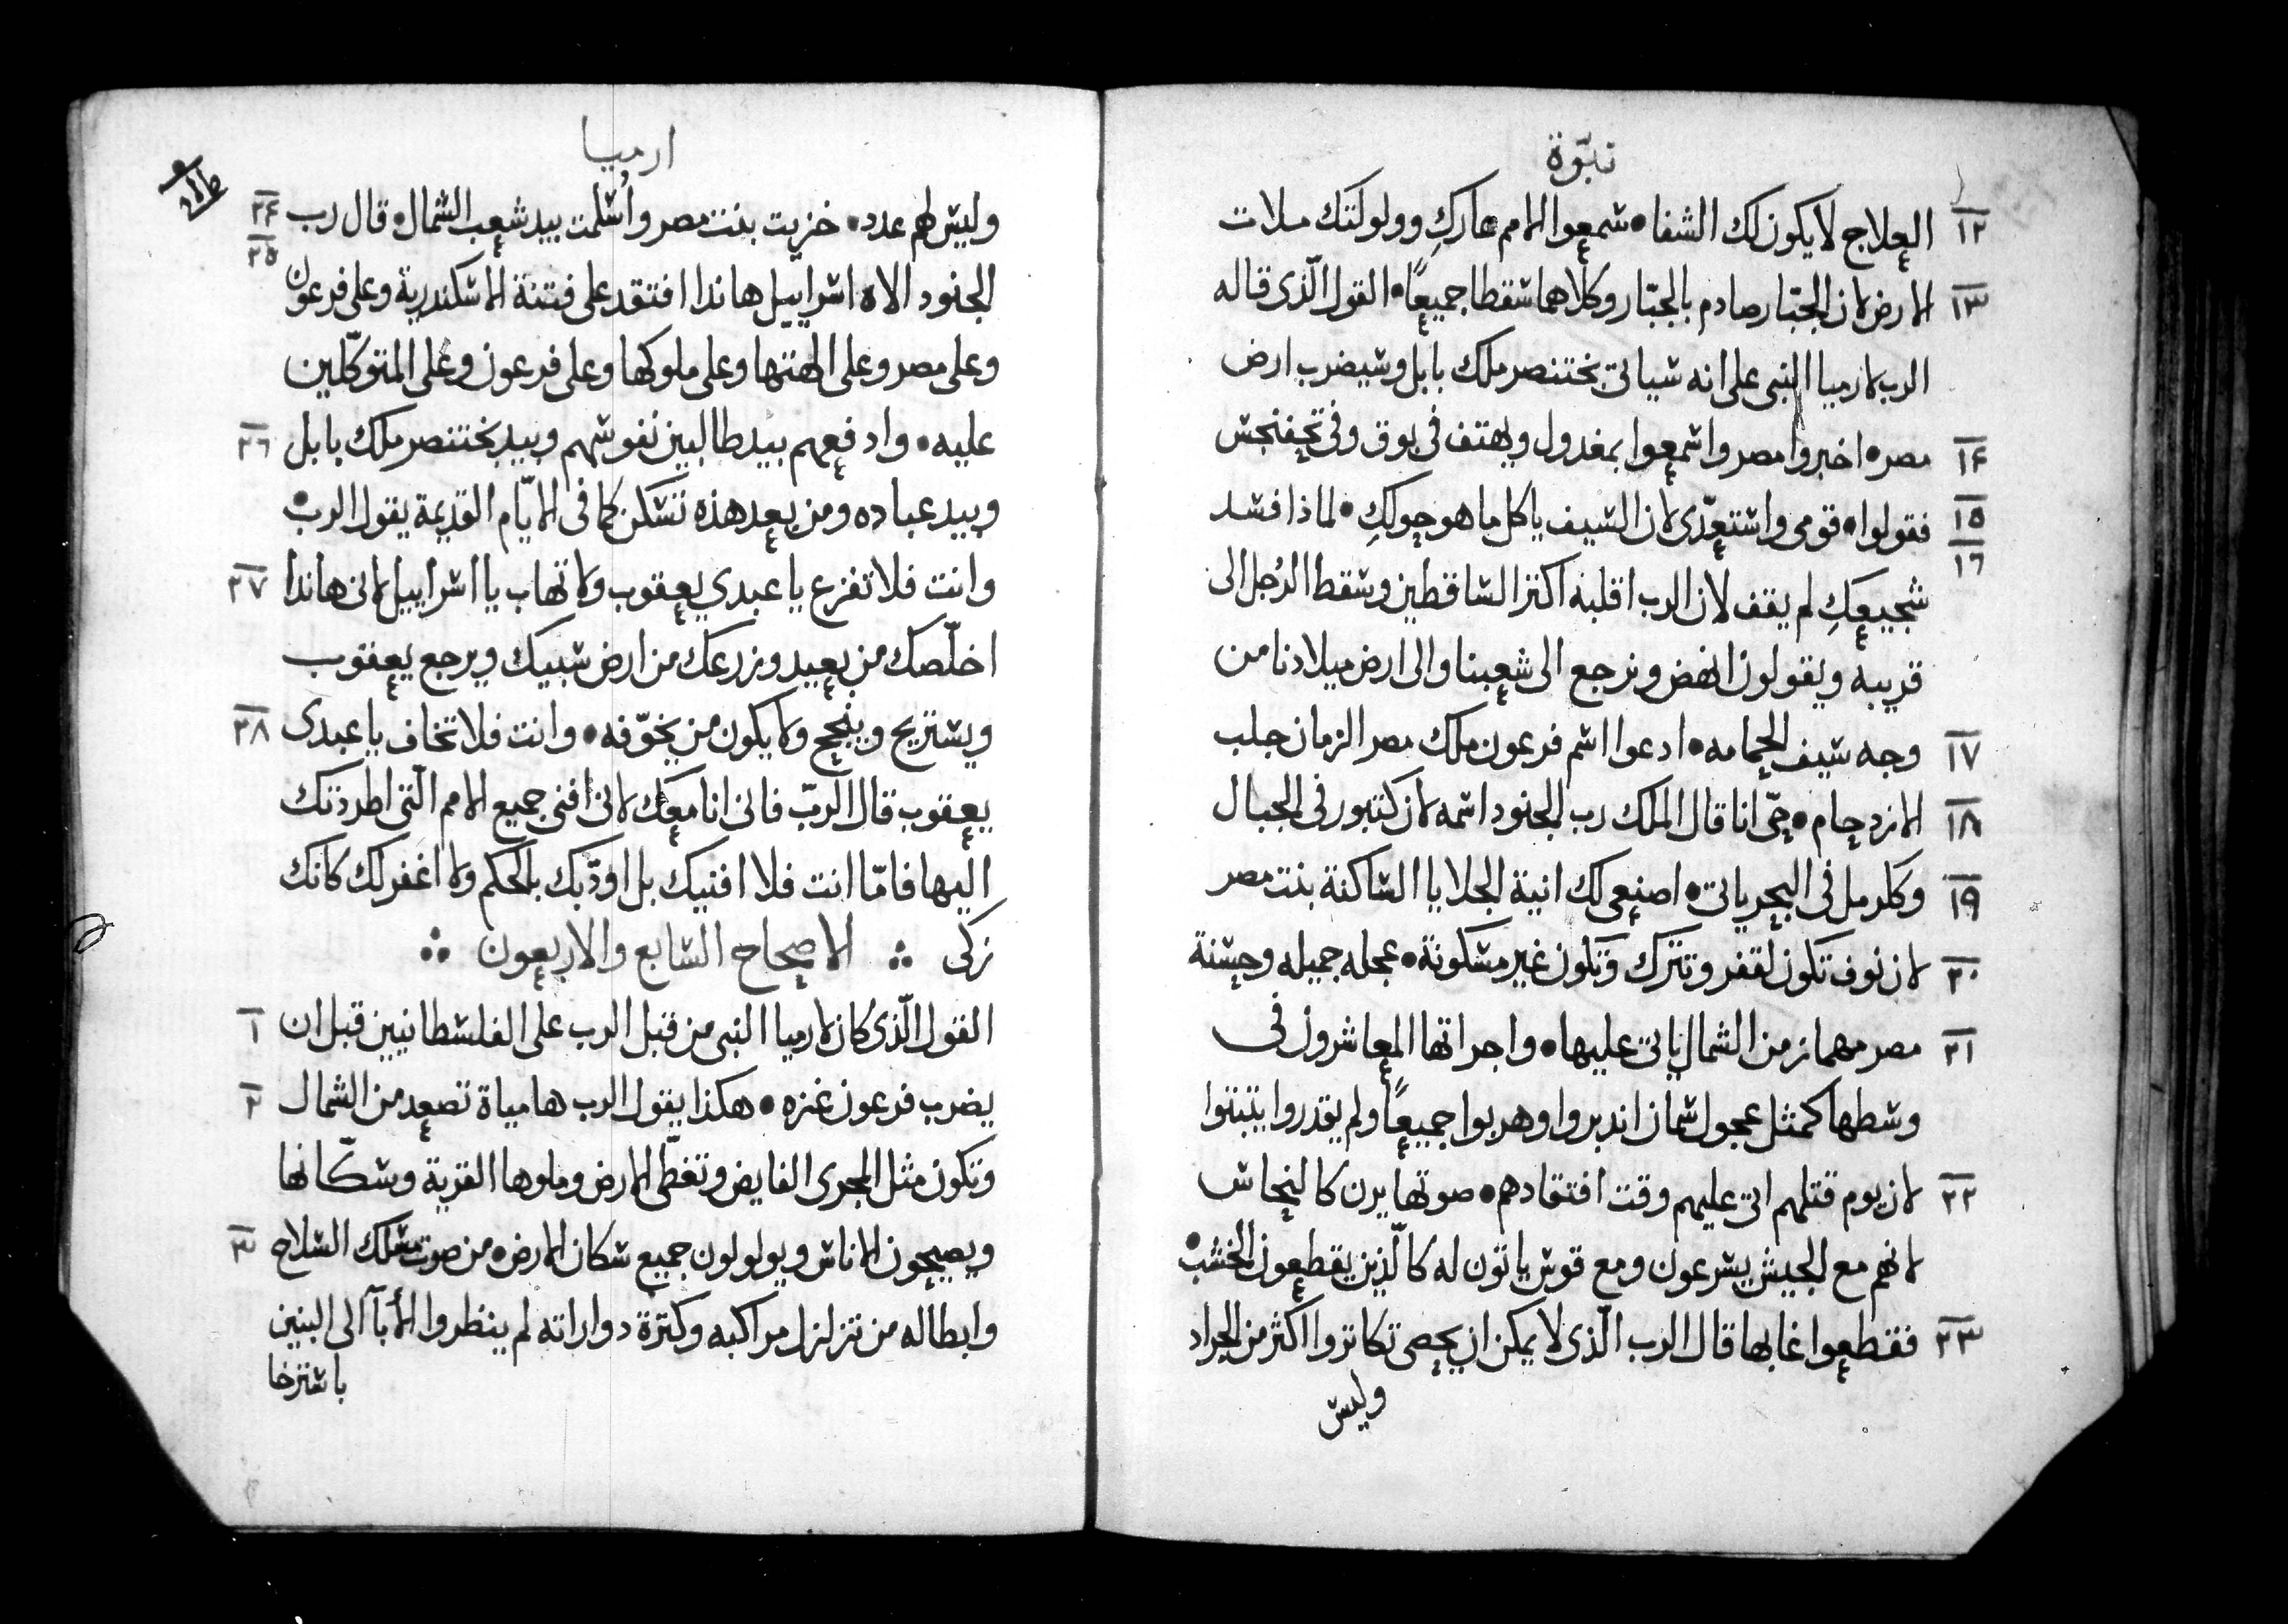 نبوّة
١٢ العلاج لا يكون لك الشفا • سمعوا الامم عاركِ وولولتك ملات
١٣ الارض لان الجبّار صادم بالجبّار وكلاهما سقطا جميعًا • القول الّذى قاله
الرب لارميا النبى على انه سياتى بختنصر ملك بابل وسيضرب ارض
١٤ مصر • اخبروا مصر واسمعوا بمغدول ويهتف فى بوق وفى تحفنحس
١٥ فقولوا • قومى واستعدّى لان السيف ياكل ما هو حولكِ • لماذا فسد
١٦ شجيعكِ لم يقف لان الرب اقلبه اكثر الساقطين وسقط الرجل الى
قريبه ويقولون انهض ونرجع الى شعبنا والى ارض ميلادنا من
١٧ وجه سيف الحمامه • ادعوا اسم فرعون ملك مصر الزمان جلب
١٨ الازدحام • حىّ انا قال الملك رب الجنود اسمه لان كتبور فى الجبال
١٩ وكلرمل فى البحرياتى • اصنعى لك انية الجلايا الساكنة بنت مصر
٢٠ لان نوف تكون لقفر وتترك وتكون غير مسكونة • عجله جميله وحسنة
٢١ مصر مهماز من الشمال ياتى عليها • واجراتها المعاشرون فى
وسطها كمثل عجول سمان اندبروا وهربوا جميعًا ولم يقدروا يتبتوا
٢٢ لان يوم قتلهم اتى عليهم وقت افتقادهم • صوتها يرن كالنحاس
لانهم مع الجيش يسرعون ومع قوس ياتون له كالّذين يقطعون الخشب •
٢٣ فقطعوا غابها قال الرب الّذى لا يمكن ان يحصى تكاتروا اكثر من الجراد
وليس
ارميا
٢٤ وليس لهم عدد • خزيت بنت مصر واُسلمت بيد شعب الشمال • قال رب
٢٥ الجنود الاه اسراييل هانذا افتقد على فتنة الاسكندرية وعلى فرعون
وعلى مصر وعلى الهتها وعلى ملوكها وعلى فرعون وعلى المتوكّلين
٢٦ عليه • وادفعهم بيد طالبين نفوسهم وبيد بختنصر ملك بابل
وبيد عباده ومن بعد هذه تسكن كما فى الايّام القديمة يقول الرب •
٢٧ وانت فلا تفزع يا عبدي يعقوب ولا تهاب يا اسراييل لانى هانذا
اخلّصك من بعيد وزرعك من ارض سبيك ويرجع يعقوب
٢٨ ويستريح وينجح ولا يكون من يخوّفه • وانت فلا تخاف يا عبدى
يعقوب قال الربّ فانى انا معك لانى افنى جميع الامم الّتى اطردتك
اليها فامّا انت فلا افنيك بل اودّبك بالحكم ولا اغفر لك كانك
زكى ∴ الاصحاح السابع والاربعون ∴
١ القول الّذى كان لارميا النبى من قبل الرب على الفلسطانيين قبل ان
٢ يضرب فرعون غزه • هكذا يقول الرب ها مياة تصعد من الشمال
وتكون مثل المجرى الفايض وتغطّى الارض وملوها القرية وسكّانها
٣ ويصيحون الاناس ويولولون جميع سكان الارض • من صوت مسلك السلاح
وابطاله من تزلزل مراكبه وكترة دواراته لم ينظروا الأبآ الى البنين
باسترخا